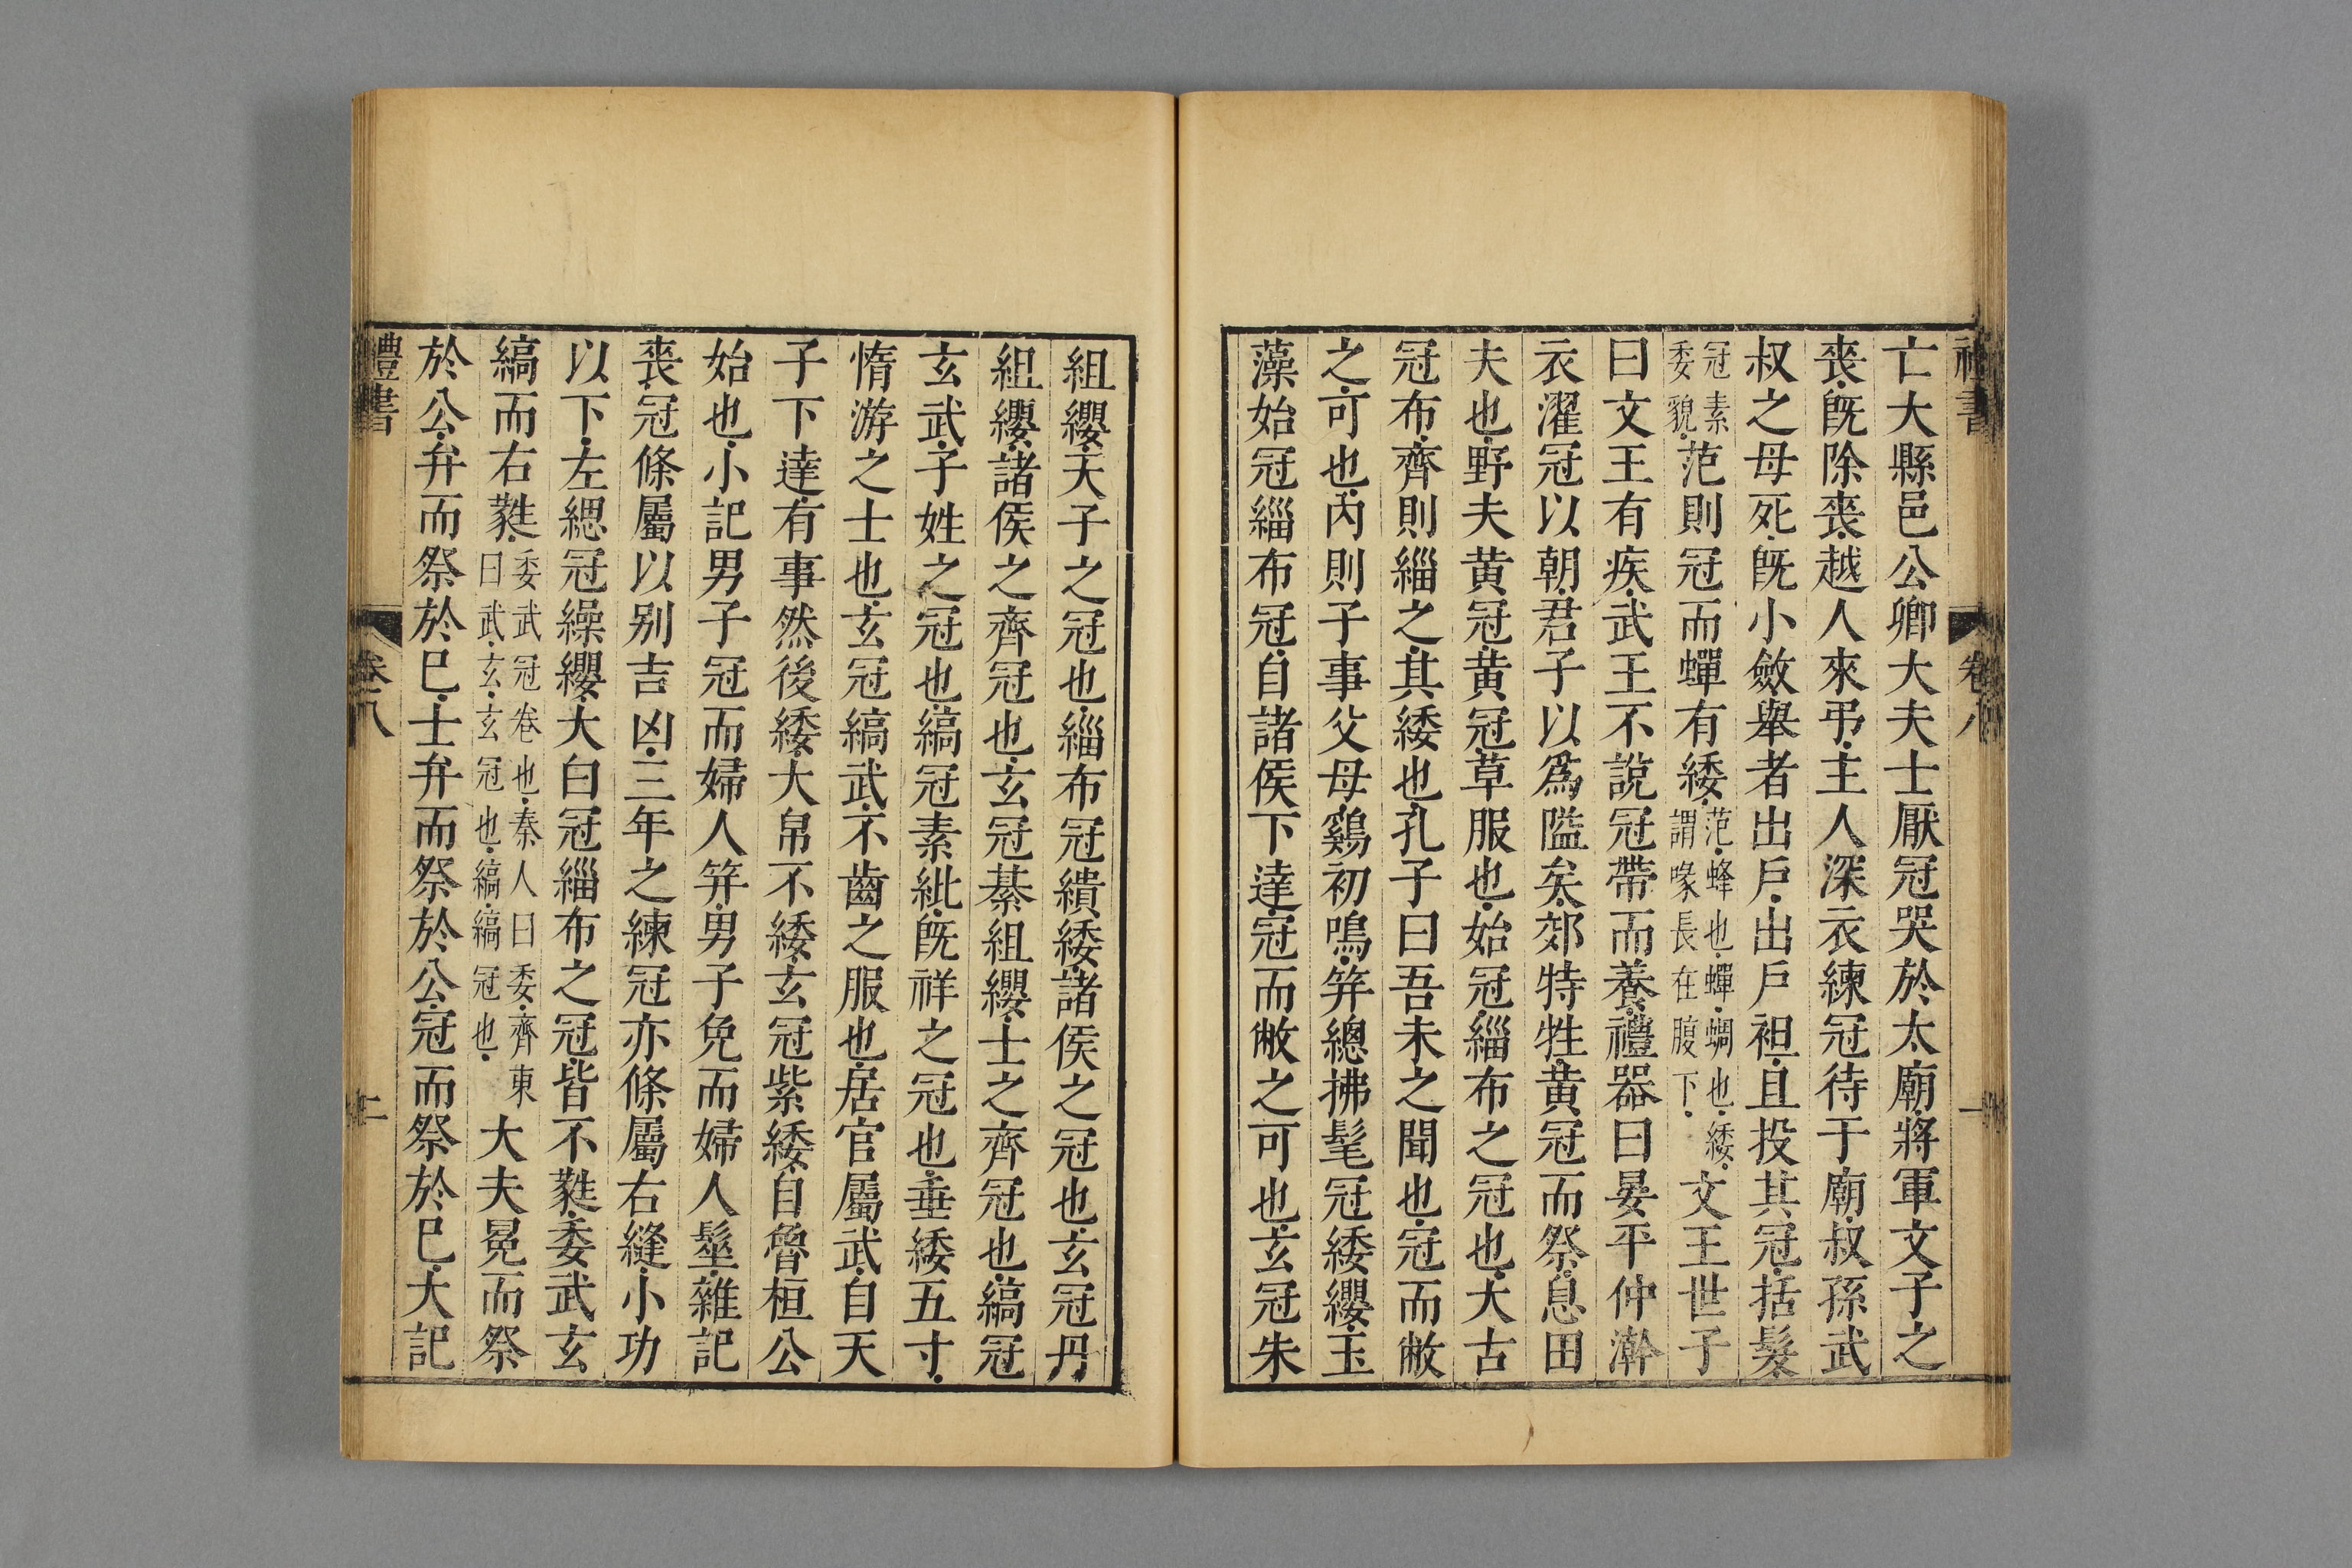 禮書 卷八 一
亡大縣邑公卿大夫士厭冠哭於太廟將軍文子之
喪既除喪越人來弔主人深衣練冠待于廟叔孫武
叔之母死既小斂舉者出戶出戶袒且投其冠括髮
冠素委貌范則冠而蟬有緌范蜂也蟬蜩也緌謂喙長在腹下文王世子
曰文王有疾武王不說冠帶而養禮器曰晏平仲澣
衣濯冠以朝君子以爲隘矣郊特牲黃冠而祭息田
夫也野夫黃冠黃冠草服也始冠緇布之冠也大古
冠布齊則緇之其緌也孔子曰吾未之聞也冠而敝
之可也內則子事父母鷄初鳴笄總拂髦冠緌纓玉
藻始冠緇布冠自諸侯下達冠而敝之可也玄冠朱
組纓天子之冠也緇布冠繢緌諸侯之冠也玄冠丹
組纓諸侯之齊冠也玄冠綦組纓士之齊冠也縞冠
玄武子姓之冠也縞冠素紕既祥之冠也垂緌五寸
惰游之士也玄冠縞武不齒之服也居官屬武自天
子下達有事然後緌大帛不緌玄冠紫緌自魯桓公
始也小記男子冠而婦人笄男子免而婦人髽雜記
喪冠條屬以別吉凶三年之練冠亦條屬右縫小功
以下左緦冠繰纓大白冠緇布之冠皆不蕤委武玄
縞而右蕤委武冠卷也秦人曰委齊東曰武玄玄冠也縞縞冠也大夫冕而祭
於公弁而祭於巳士弁而祭於公冠而祭於巳大記
禮書 卷八 二